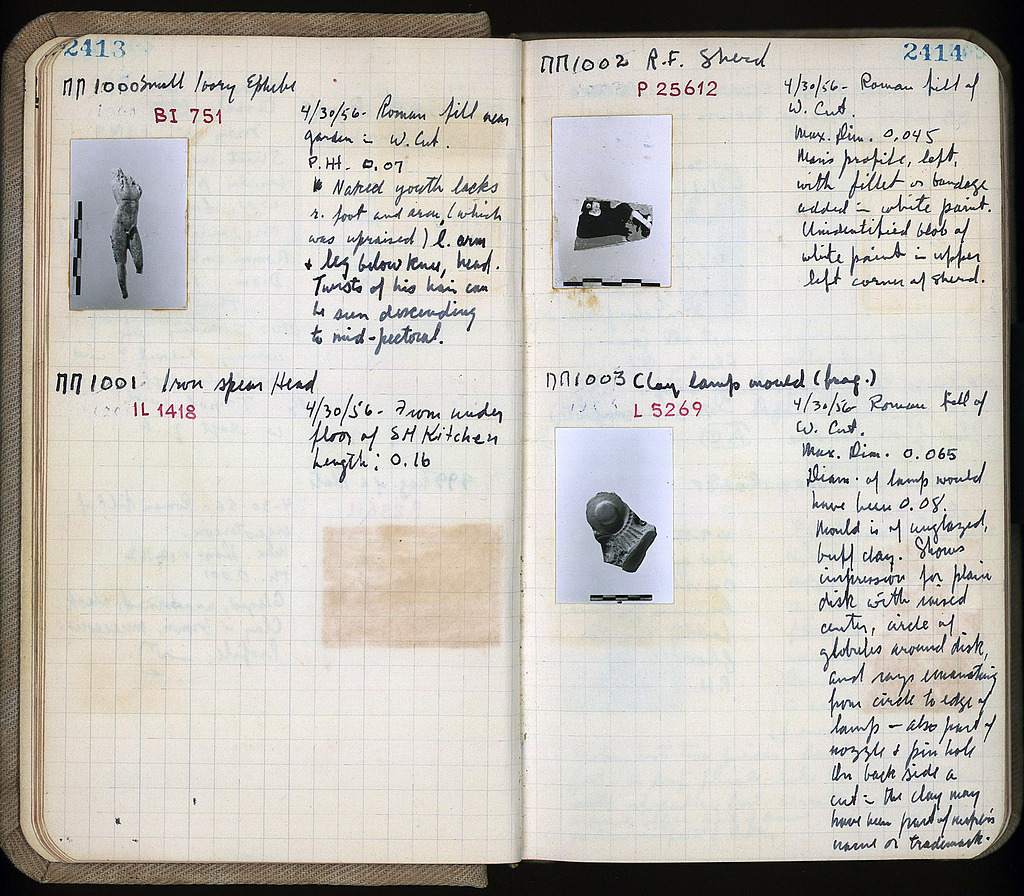 2413
ΠΠ 1000 Small Ivory Ephebe
BI 751
4/30/56 - Roman fill near
garden in W. Cut.
P.H. 0.07
Naked youth lacks
r. foot and arm, (which
was upraised) l. arm
+ leg below knee, head.
Twists of his hair can
be seen descending
to mid-pectoral.
ΠΠ 1001 Iron spear Head
IL 1418
4/30/56 - From under
floor of SH Kitchen
Length: 0.16
2414
ΠΠ 1002 R.F. Sherd
P 25612
4/30/56 - Roman fill of
W. Cut.
Max. Dim. 0.045
Man's profile, left,
with fillet or bandage
added in white paint.
Unidentified blob of
white paint in upper
left corner of sherd.
ΠΠ 1003 Clay lamp mould (frag.)
L 5269
4/30/56 Roman fill of
W. Cut.
Max. Dim. 0.065
Diam. of lamp would
have been 0.08.
Mould is of unglazed,
buff clay. Shows
impression for plain
disk with raised
center, circle of
globules around disk,
and rays emanating
from circle to edge of
lamp – also part of
nozzle & pin hole
On back side a
cut in the clay may
have been part of maker's
name or trademark.